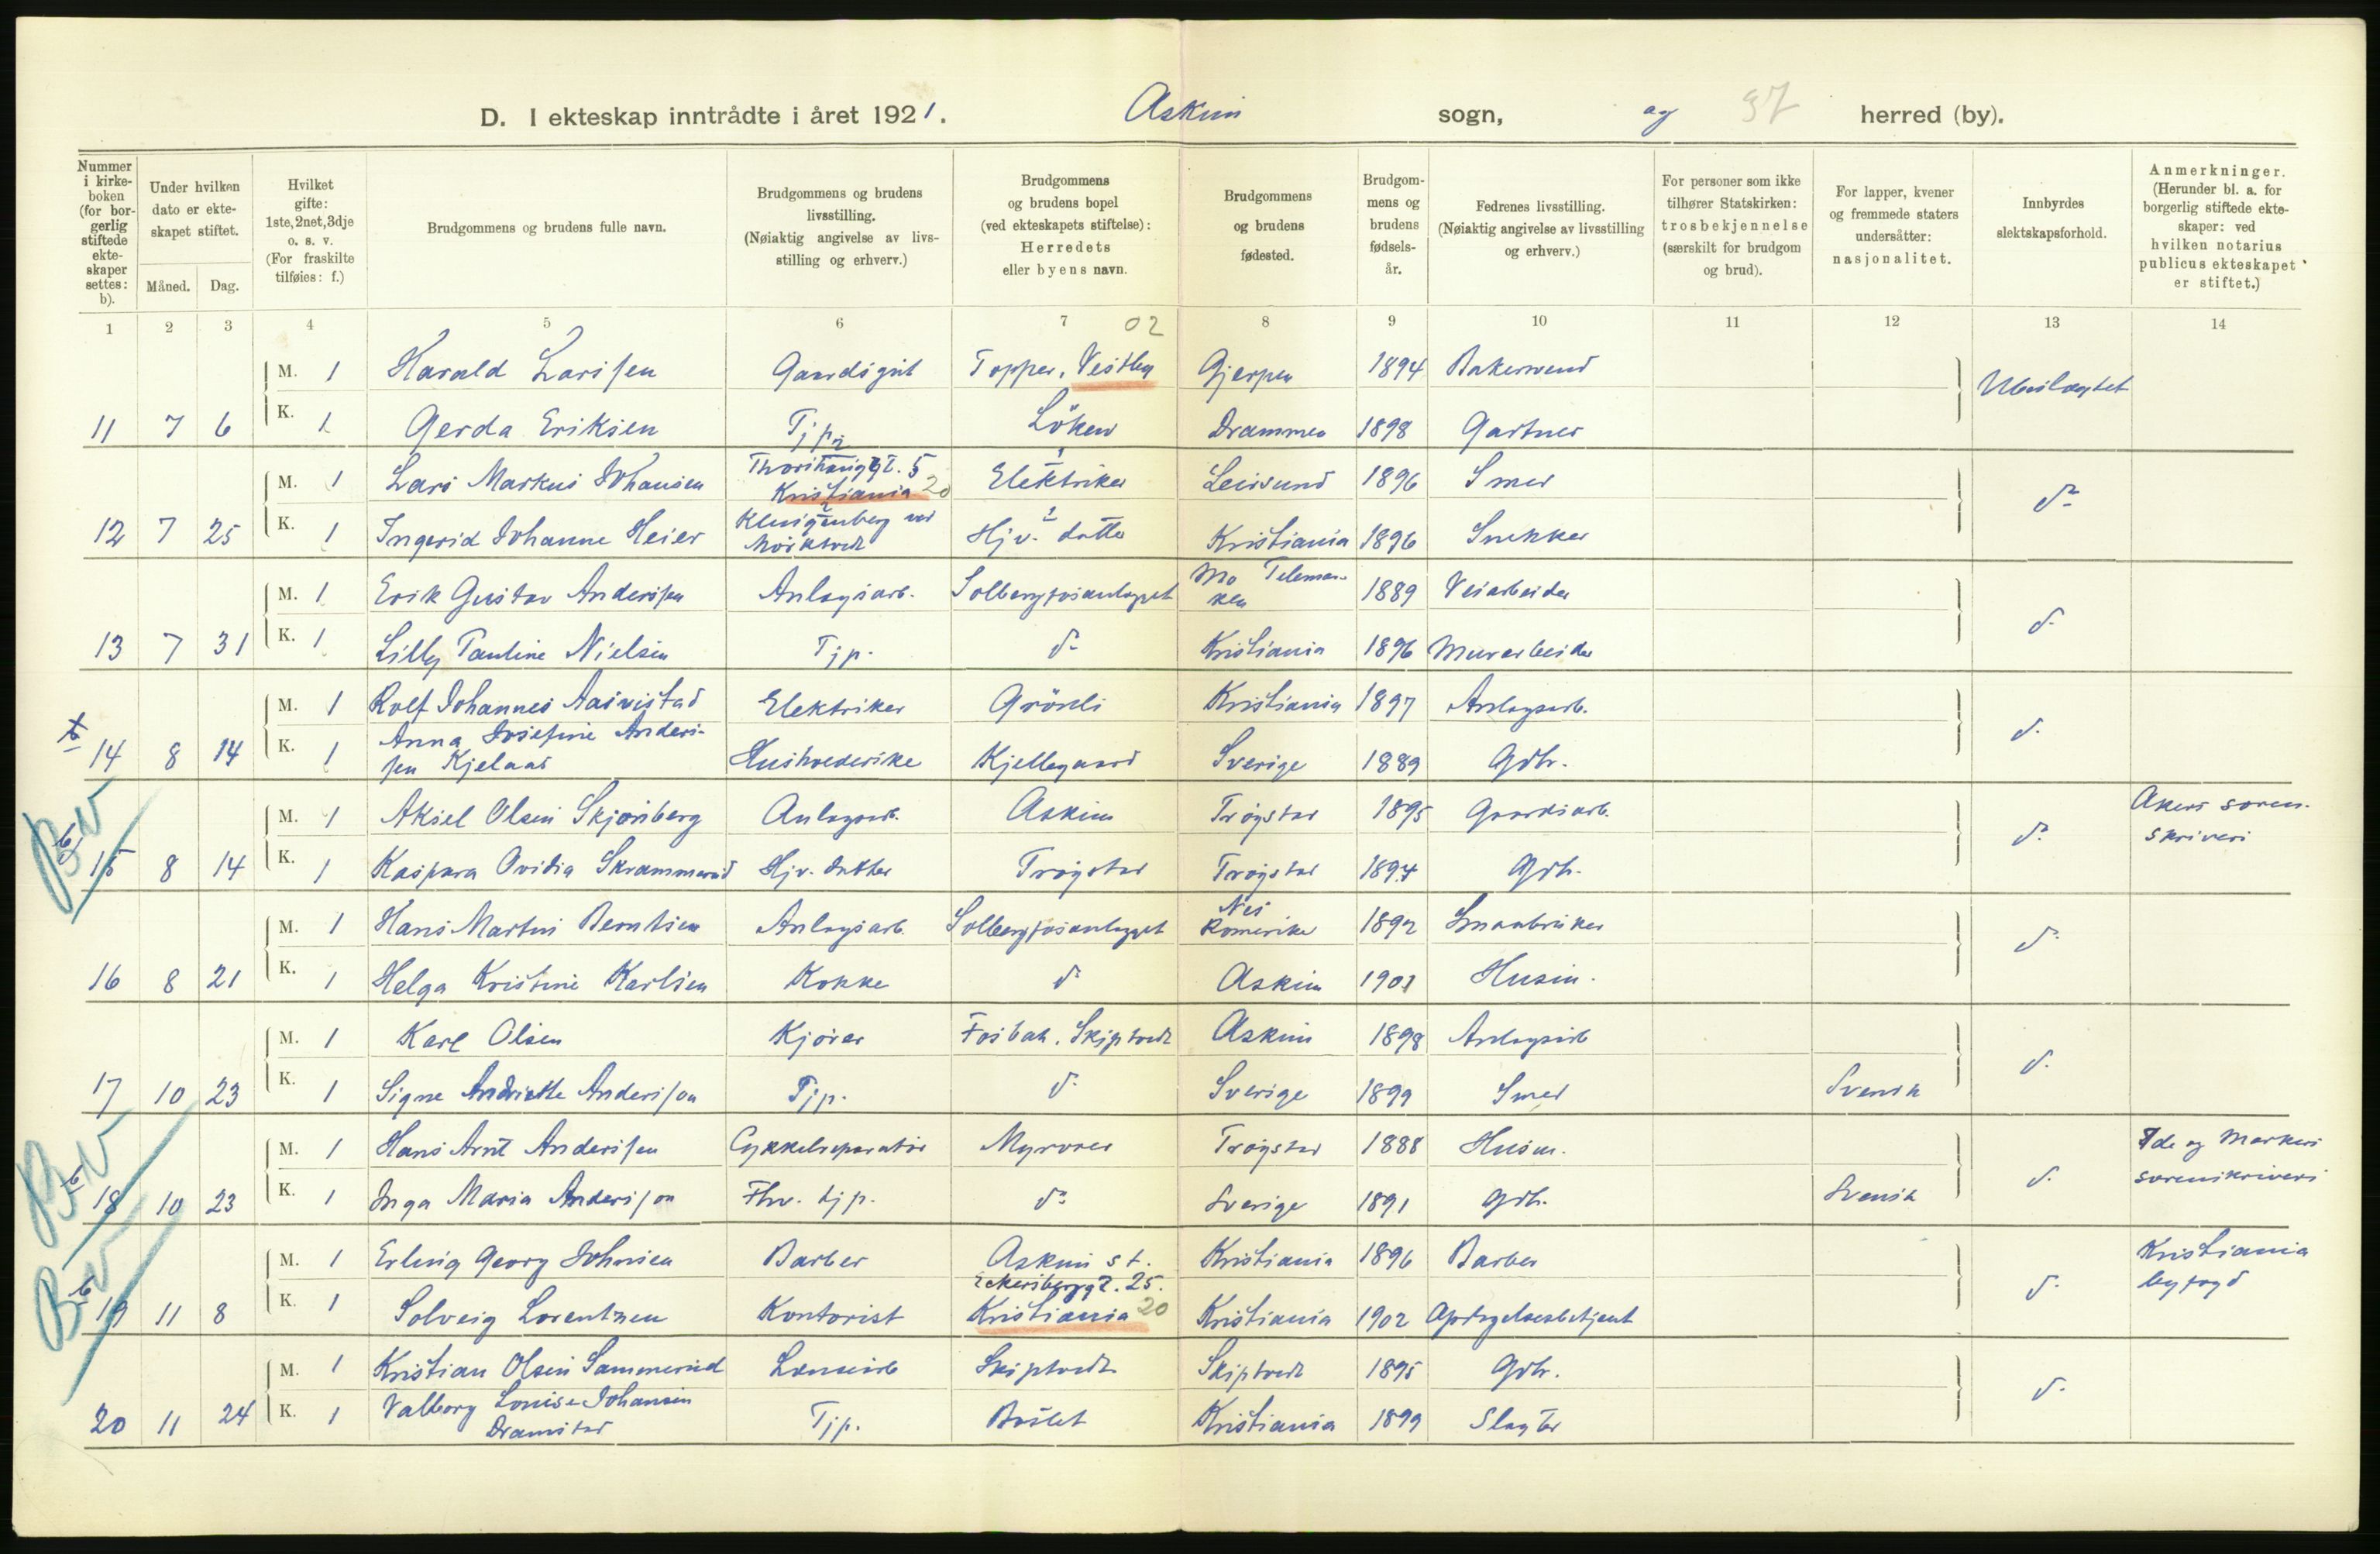 D. I ekteskap inntrådte i året 1921. Askim sogn, og 37 herred (by).
Nummer i kirkeboken (for borgerlig stiftede ekteskaper settes: b).
Under hvilken dato er ekteskapet stiftet.
Måned. Dag.
Hvilket gifte: 1ste, 2net, 3dje o. s. v. (For fraskilte tilføies: f.)
Brudgommens og brudens fulle navn.
Brudgommens og brudens livsstilling. (Nøiaktig angivelse av livsstilling og erhverv.)
Brudgommens og brudens bopel (ved ekteskapets stiftelse): Herredets eller byens navn.
Brudgommens og brudens fødested.
Brudgommens og brudens fødselsår.
Fedrenes livsstilling. (Nøiaktig angivelse av livsstilling og erhverv.)
For personer som ikke tilhører Statskirken: trosbekjennelse (særskilt for brudgom og brud).
For lapper, kvener og fremmede staters undersåtter: nasjonalitet.
Innbyrdes slektskapsforhold.
Anmerkninger. (Herunder bl. a. for borgerlig stiftede ekteskaper: ved hvilken notarius publicus ekteskapet er stiftet.)
1 2 3 4 5 6 7 02 8 9 10 11 12 13 14
M. 1 Harald Larssen Gaardsgut Topper, Vestby Gjerpen 1894 Bakersvend Ubeslægtet
11 7 6 K. 1 Gerda Eriksen Tjp. Löken Drammen 1898 Gartner
M. 1 Lars Markus Johansen Kristiania 20 Elektriker 1896 Smed do
12 7 25 K. 1 Ingerid Johanne Heier Klingenberg ved Mörktvedt Hjv. datter Kristiania 1896 Snekker
M. 1 Erik Gustav Anderssen Anlagsarb. Solbergfosanlægget Mo Telemarken 1889 Veiarbeider do
13 7 31 K. 1 Lilly Pauline Nielsen Tjp. do Kristiania 1896 Murarbeider
M. 1 Rolf Johannes Aasvistad Elektriker Grönli Kristiania 1897 Anlagsarb. do
14 8 14 K. 1 Anna Josefine Anderssen Kjelaas Husholderske Kjellegaard Sverige 1889 Gdbr.
M. 1 Aksel Olsen Skjönberg Anlagsarb. Askim Trögstad 1895 Gaardsarb. do Akers sorenskriveri
b 15 8 14 K. 1 Kaspara Ovidia Skrammerud Hjv. datter Trögstad Trögstad 1894 Gdb.
M. 1 Hans Martin Berntsen Anlagsarb. Solbergfosanlægget Nes Romerike 1892 Smaabruker do
16 8 21 K. 1 Helga Kristine Karlsen Kokke do Askim 1901 Husm.
M. 1 Karl Olsen Kjörer Fosbak. Skiptvedt Askim 1898 Anlagsarb do
17 10 23 K. 1 Signe Andriette Andersson Tjp. do Sverige 1899 Smed Svensk
M. 1 Hans Arnt Anderssen Cykkelreparatör Myrvoll Trögstad 1888 Husm. do Ide og Markers sorenskriveri
b 18 10 23 K. 1 Inga Maria Andersson Fhv. tjp. do Sverige 1891 Gdb. Svensk
M. 1 Erling Georg Johnsen Barber Askim st. Kristiania 1896 Barber do Kristiania byfogd
b 19 11 8 K. 1 Solveig Lorentzen Kontorist Eckersberggt. 25. Kristiania 20 Kristiania 1902 Opsynsbetjent
M. 1 Kristian Olsen Sammerud Skiptvedt Skiptvedt 1895 Gdb. do
20 11 24 K. 1 Valborg Louise Johansen Dramstad Tjp. Kristiania 1899 Slagter